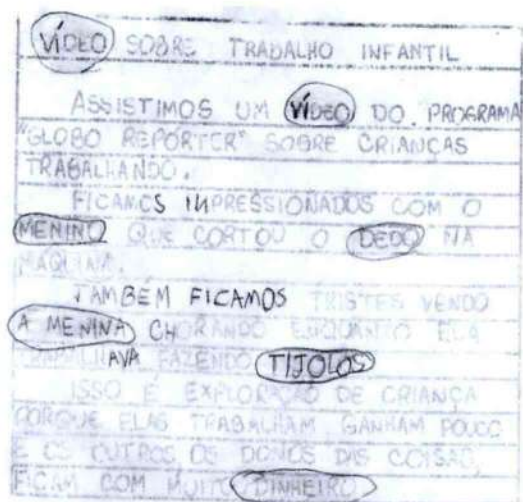 VÍDEO SOBRE TRABALHO INFANTIL
ASSISTIMOS UM VÍDEO DO PROGRAMA
"GLOBO REPÓRTER" SOBRE CRIANÇAS
TRABALHANDO.
FICAMOS IMPRESSIONADOS COM O
MENINO QUE CORTOU O DEDO NA
MÁQUINA.
TAMBÉM FICAMOS TRISTES VENDO
A MENINA CHORANDO ENQUANTO ELA
TRABALHAVA FAZENDO TIJOLOS
ISSO É EXPLORAÇÃO DE CRIANÇA
PORQUE ELAS TRABALHAM GANHAM POUCO
E OS OUTROS OS DONOS DAS COISAS,
FICAM COM MUITO DINHEIRO